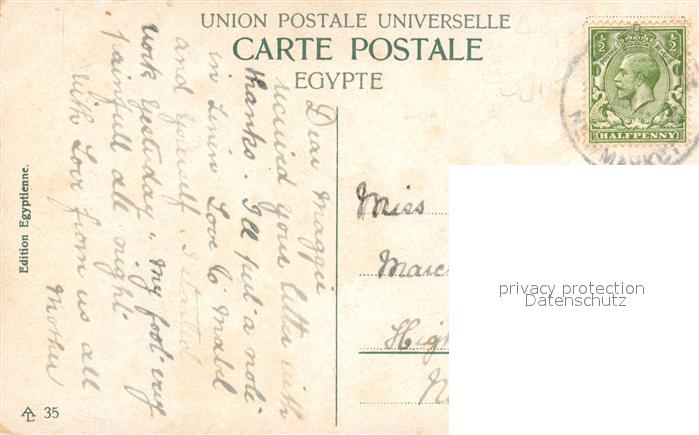 UNION POSTALE UNIVERSELLE
CARTE POSTALE
EGYPTE
1/2 1/2
HALFPENNY
MARKET
Dear Maggie
received your letter with
thanks. I'll put a note
in Love to Mabel
and yourself. I started
work yesterday. My foot very
painfull all night
with Love from us all
Mother
Miss
privacy protection
Datenschutz
Edition Egyptienne.
35